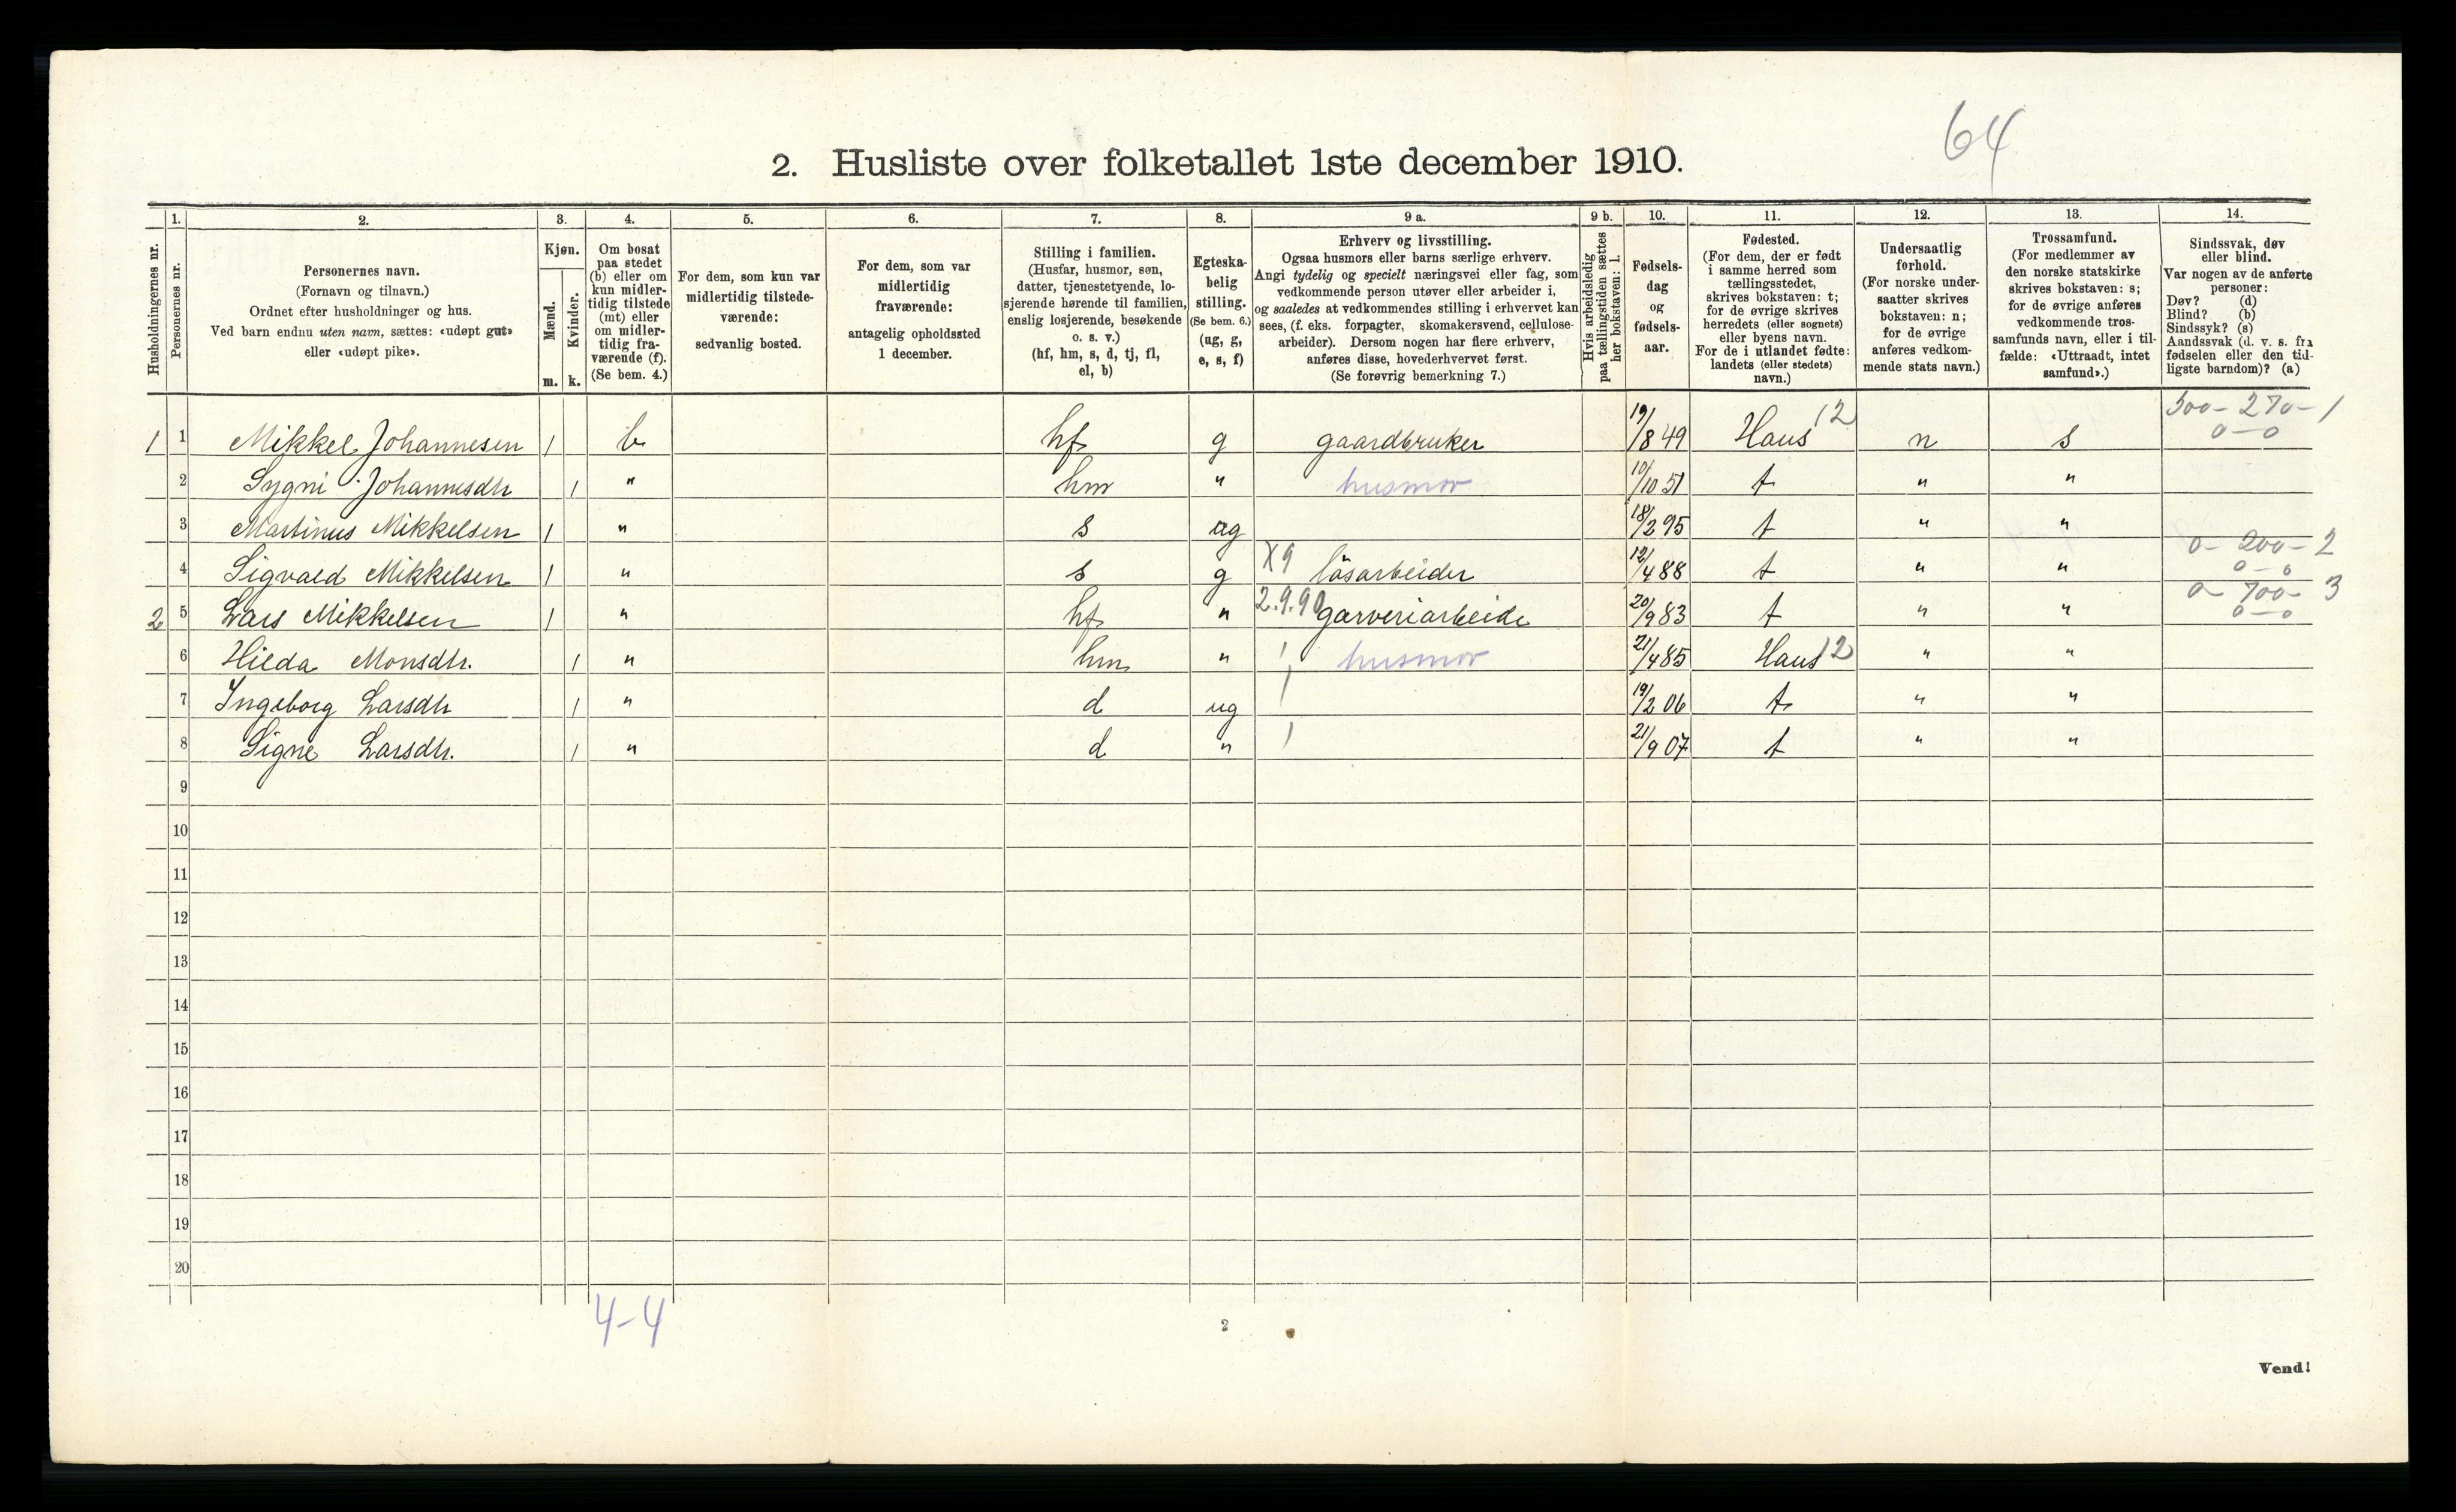 64
2. Husliste over folketallet 1ste december 1910.
1. 2. 3. 4. 5. 6. 7. 8. 9 a. 9 b. 10. 11. 12. 13. 14.
Husholdningernes nr.
Personernes nr.
Personernes navn.
(Fornavn og tilnavn.)
Ordnet efter husholdninger og hus.
Ved barn endnu uten navn, sættes: «udøpt gut»
eller «udøpt pike».
Kjøn.
Mænd.
Kvinder.
m. k.
Om bosat
paa stedet
(b) eller om
kun midler-
tidig tilstede
(mt) eller
om midler-
tidig fra-
værende (f).
(Se bem. 4.)
For dem, som kun var
midlertidig tilstede-
værende:
sedvanlig bosted.
For dem, som var
midlertidig
fraværende:
antagelig opholdssted
1 december.
Stilling i familien.
(Husfar, husmor, søn,
datter, tjenestetyende, lo-
sjerende hørende til familien,
enslig losjerende, besøkende
o. s. v.)
(hf, hm, s, d, tj, fl,
el, b)
Egteska-
belig
stilling.
(Se bem. 6.)
(ug, g,
e, s, f)
Erhverv og livsstilling.
Ogsaa husmors eller barns særlige erhverv.
Angi tydelig og specielt næringsvei eller fag, som
vedkommende person utøver eller arbeider i,
og saaledes at vedkommendes stilling i erhvervet kan
sees, (f. eks. forpagter, skomakersvend, cellulose-
arbeider). Dersom nogen har flere erhverv,
anføres disse, hovederhvervet først.
(Se forøvrig bemerkning 7.)
Hvis arbeidsledig
paa tællingstiden sættes
her bokstaven: l.
Fødsels-
dag
og
fødsels-
aar.
Fødested.
(For dem, der er født
i samme herred som
tællingsstedet,
skrives bokstaven: t;
for de øvrige skrives
herredets (eller sognets)
eller byens navn.
For de i utlandet fødte:
landets (eller stedets)
navn.)
Undersaatlig
forhold.
(For norske under-
saatter skrives
bokstaven: n;
for de øvrige
anføres vedkom-
mende stats navn.)
Trossamfund.
(For medlemmer av
den norske statskirke
skrives bokstaven: s;
for de øvrige anføres
vedkommende tros-
samfunds navn, eller i til-
fælde: «Uttraadt, intet
samfund».)
Sindssvak, døv
eller blind.
Var nogen av de anførte
personer:
Døv? (d)
Blind? (b)
Sindssyk? (s)
Aandssvak (d. v. s. fra
fødselen eller den tid-
ligste barndom)? (a)
1 1 Mikkel Johannesen 1 b hf g gaardbruker 19/8 49 Haus 12 n s 300-270-1 0-0
2 Sygni Johannesdtr 1 " hm " husmor 10/10 51 t " "
3 Martinus Mikkelsen 1 " s ug 18/2 95 t " "
4 Sigvald Mikkelsen 1 " s g X9 løsarbeider 12/4 88 t " " 0-200-2 0-0
2 5 Lars Mikkelsen 1 " hf " 2.9.90 garveriarbeide 20/9 83 t " " 0-700-3 0-0
6 Hilda Monsdtr. 1 " hm " 1 husmor 21/4 85 Haus 12 " "
7 Ingeborg Larsdtr 1 " d ug 1 19/2 06 t " "
8 Signe Larsdtr. 1 " d " 1 21/9 07 t " "
9
10
11
12
13
14
15
16
17
18
19
20
4-4
2
Vend!